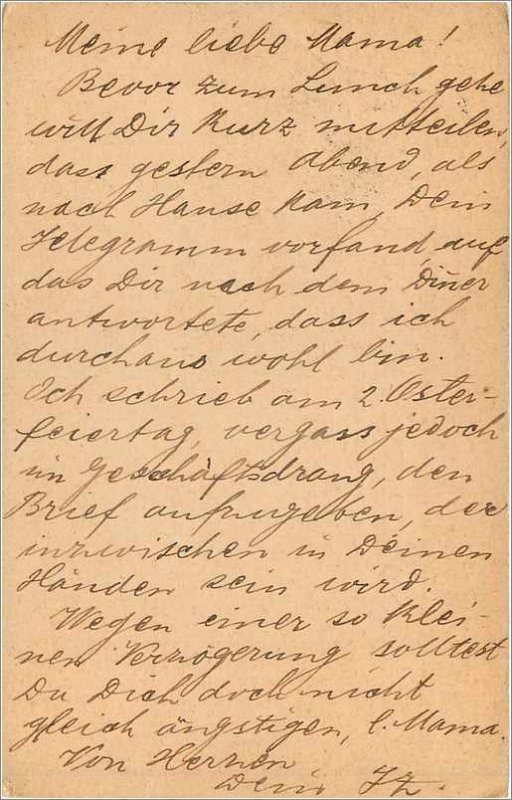 Meine liebe Mama!
Bevor zum Lunch gehe
will Dir kurz mitteilen,
dass gestern abend, als
nach Hause kam, Dein
Telegramm vorfand, auf
das Dir nach dem Diner
antwortete, dass ich
durchaus wohl bin.
Ich schrieb am 2. Oster-
feiertag, vergass jedoch
im Geschäftsdrang, den
Brief aufzugeben, der
inzwischen in Deinen
Händen sein wird.
Wegen einer so klei-
nen Verzögerung solltest
Du Dich doch nicht
gleich ängstigen, l. Mama.
Von Herzen
Dein